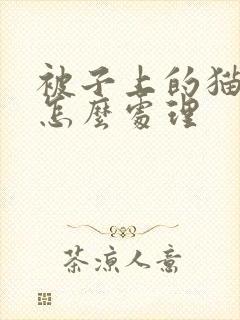 被子上的猫
怎麽處理
茶凉人意